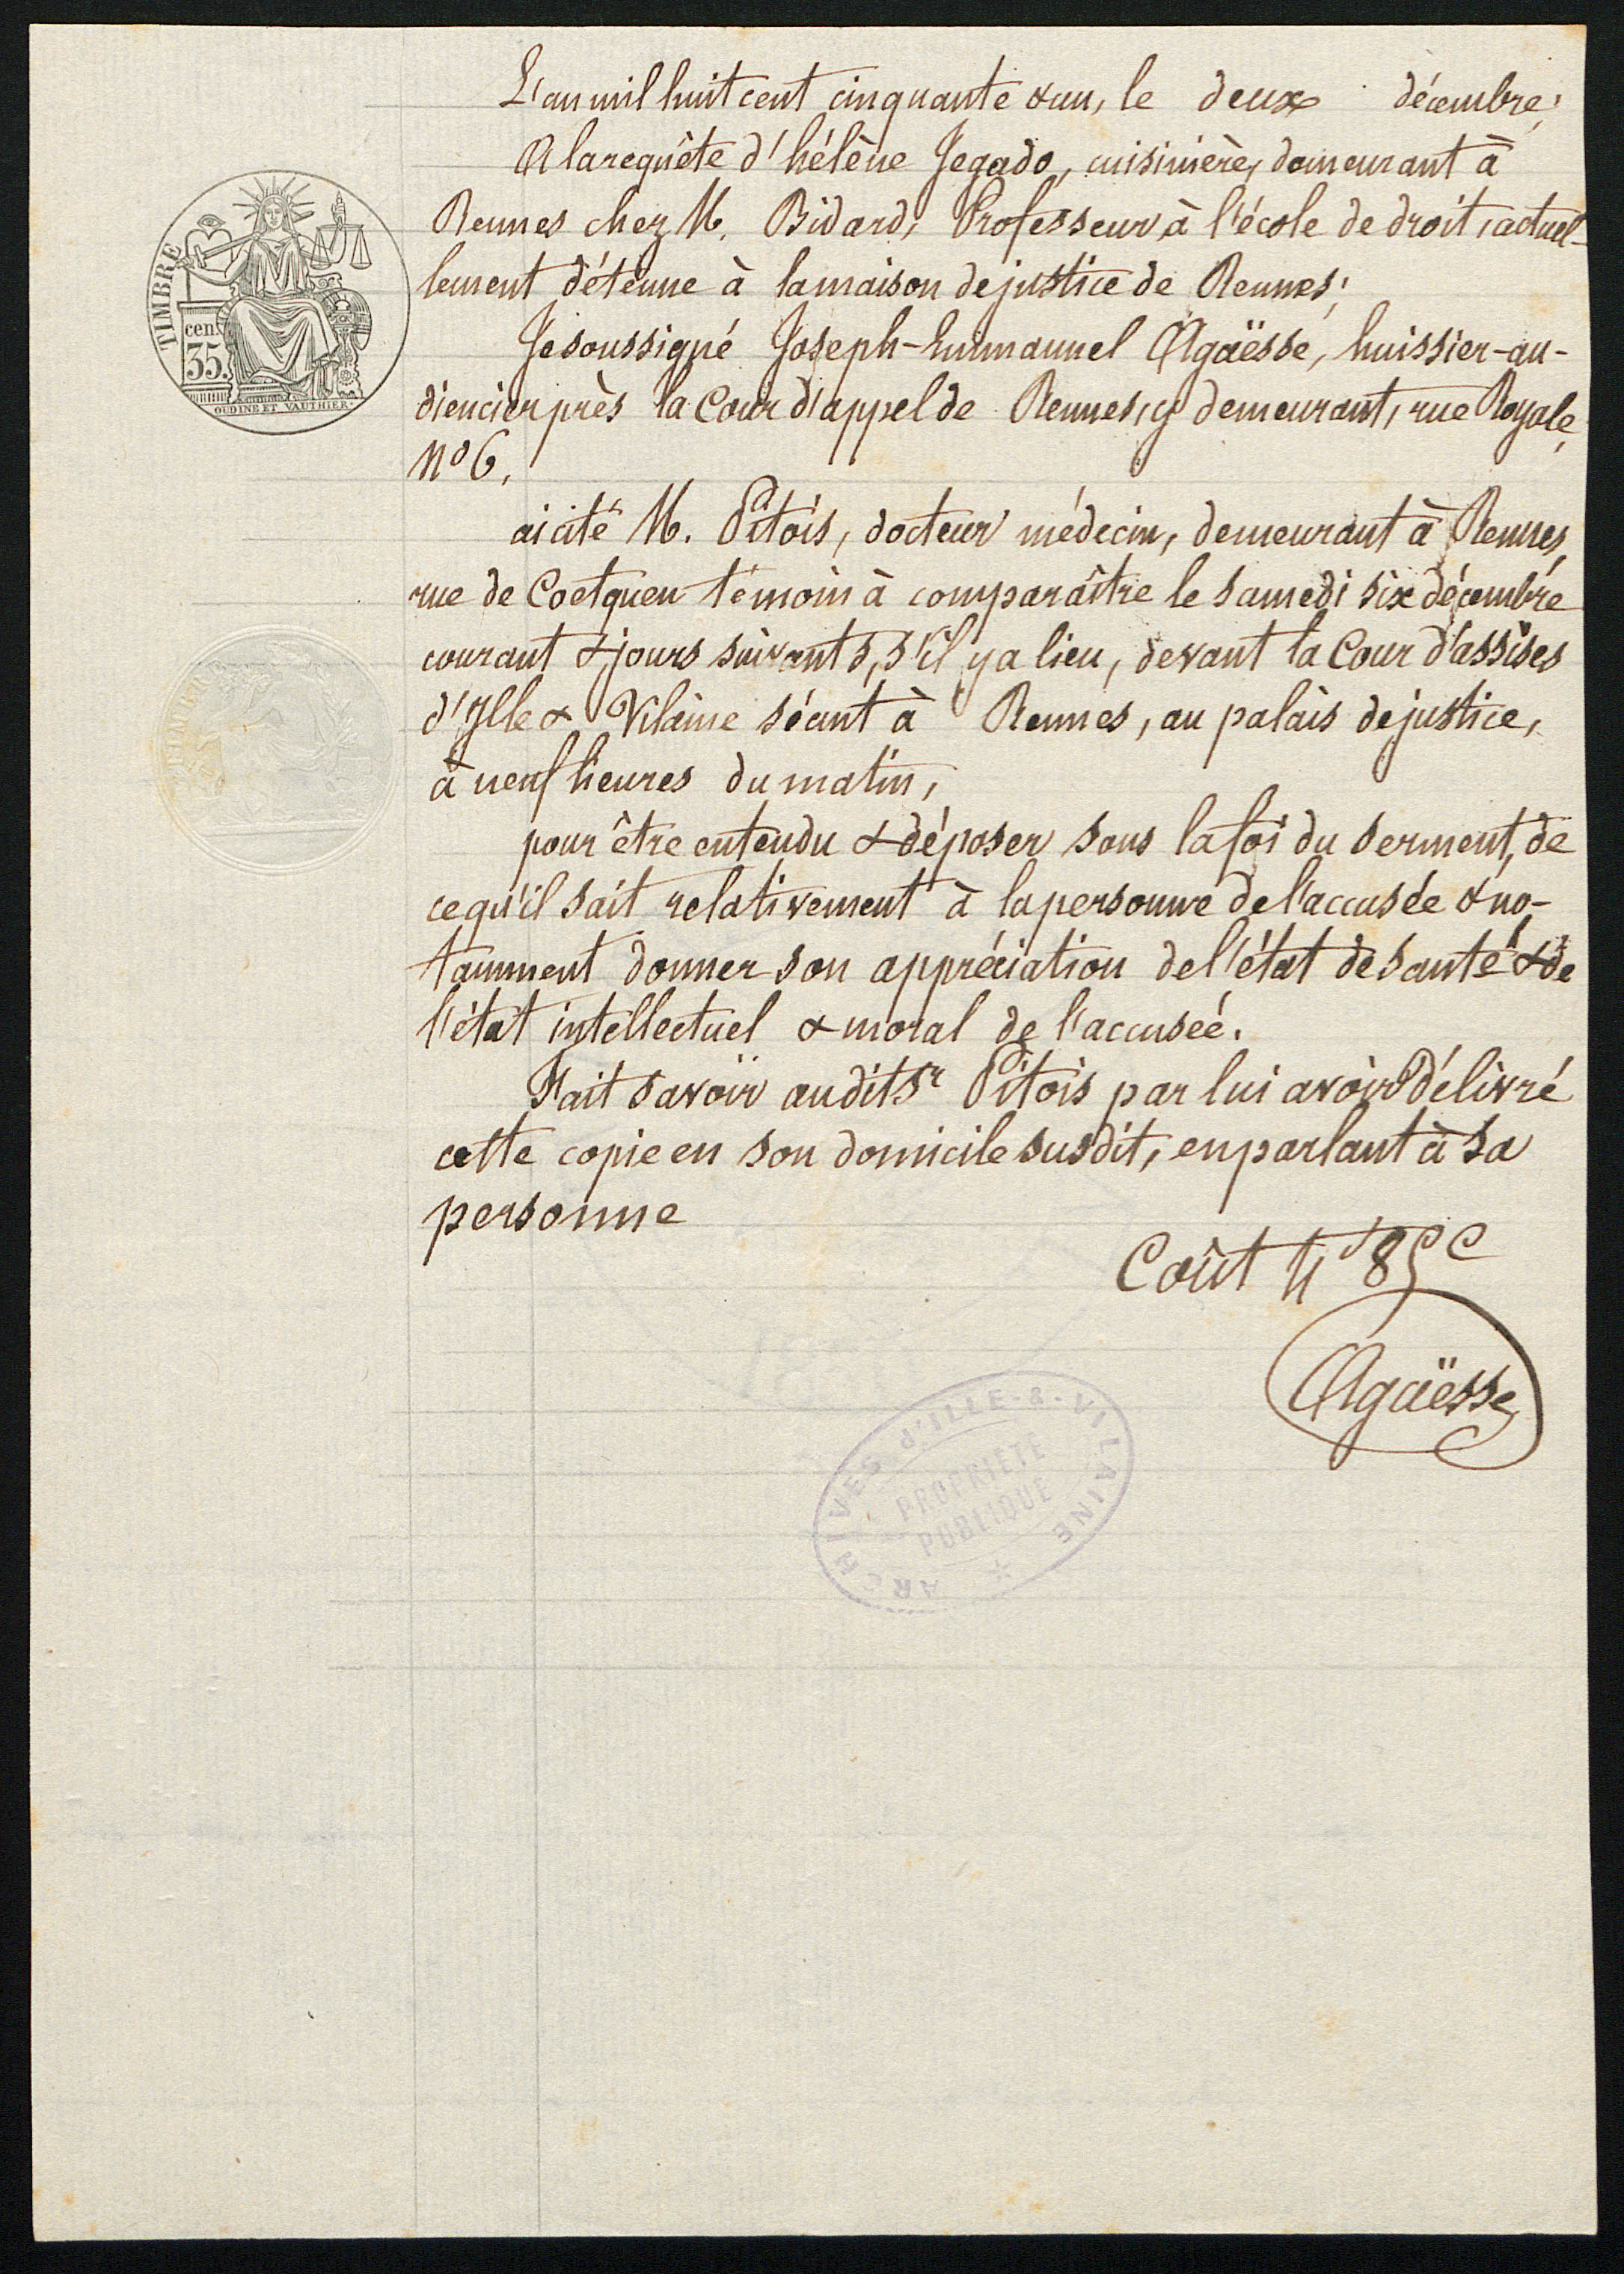 L'an mil huit cent cinquante & un, le deux décembre;
A la requête d'hélène Jegado, cuisinière, demeurant à
Rennes chez M. Bidard, Professeur à l'école de droit, actuel-
lement détenue à la maison de justice de Rennes;
TIMBRE
cen.
35.
OUDINE ET VAUTHIER.
Je soussigné Joseph-Emmanuel Agaësse, huissier-au-
diencier près la Cour d'appel de Rennes, y demeurant, rue Royale,
No 6,
ai cité M. Pitois, docteur médecin, demeurant à Rennes,
rue de Coetquen témoin à comparaître le samedi six décembre
courant & jours suivants, s'il y a lieu, devant la Cour d'assises
d'Ille & Vilaine séant à Rennes, au palais de justice,
à neuf heures du matin,
pour être entendu & déposer sous la foi du serment, de
ce qu'il sait relativement à la personne de l'accusée & no-
tamment donner son appréciation de l'état de santé & de
l'état intellectuel & moral de l'accusée.
Fait savoir audit Sr Pitois par lui avoir délivré
cette copie en son domicile susdit, en parlant à sa
personne
Coût 4f 85c
Agaësse
ARCHIVES d'ILLE-&-VILAINE
PROPRIÉTÉ
PUBLIQUE